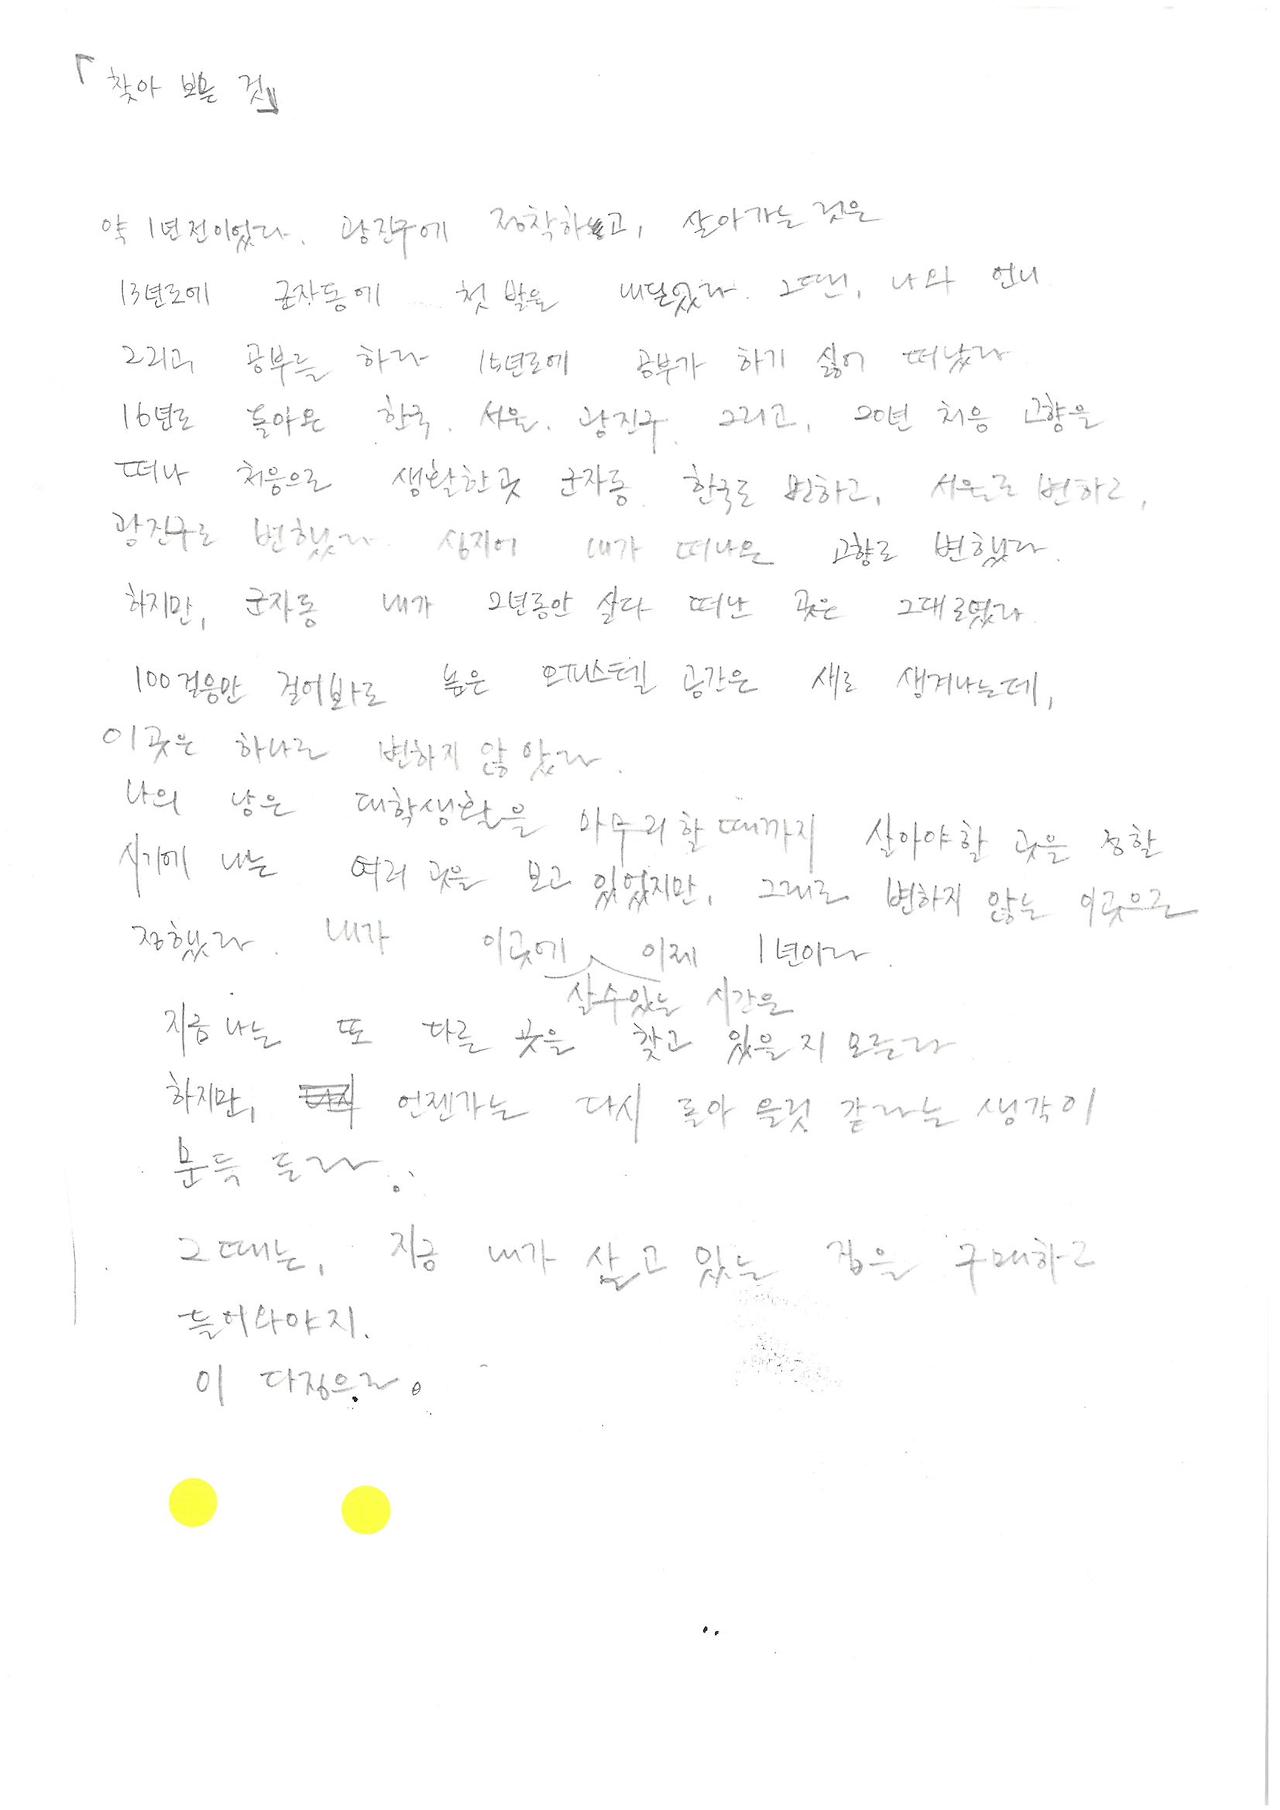 「찾아 보는 것」
약 1년전이었다. 광진구에 정착하고, 살아가는 것은
13년도에 군자동에 첫 발을 내딛었다. 그땐, 나와 언니
그리고 공부를 하다 15년도에 공부가 하기 싫어 떠났다
16년도 돌아온 한국. 서울. 광진구. 그리고, 20년 처음 고향을
떠나 처음으로 생활한곳 군자동. 한국도 변하고, 서울도 변하고,
광진구도 변했다. 심지어 내가 떠나온 고향도 변했다.
하지만, 군자동 내가 2년동안 살다 떠난 곳은 그대로였다.
100걸음만 걸어봐도 높은 오피스텔 공간은 새로 생겨나는데,
이곳은 하나도 변하지 않았다.
나의 남은 대학생활을 마무리할때까지 살아야할 곳을 정할
시기에 나는 여러 곳을 보고 있었지만, 그대로 변하지 않는 이곳으로
정했다. 내가 이곳에 이제 1년이다.
살수있는 시간은
지금 나는 또 다른 곳을 찾고 있을지 모른다
하지만, 언젠가는 다시 돌아 올것 같다는 생각이
문득 든다.
그때는, 지금 내가 살고 있는 집을 구매하고
들어와야지.
이 다짐으로.